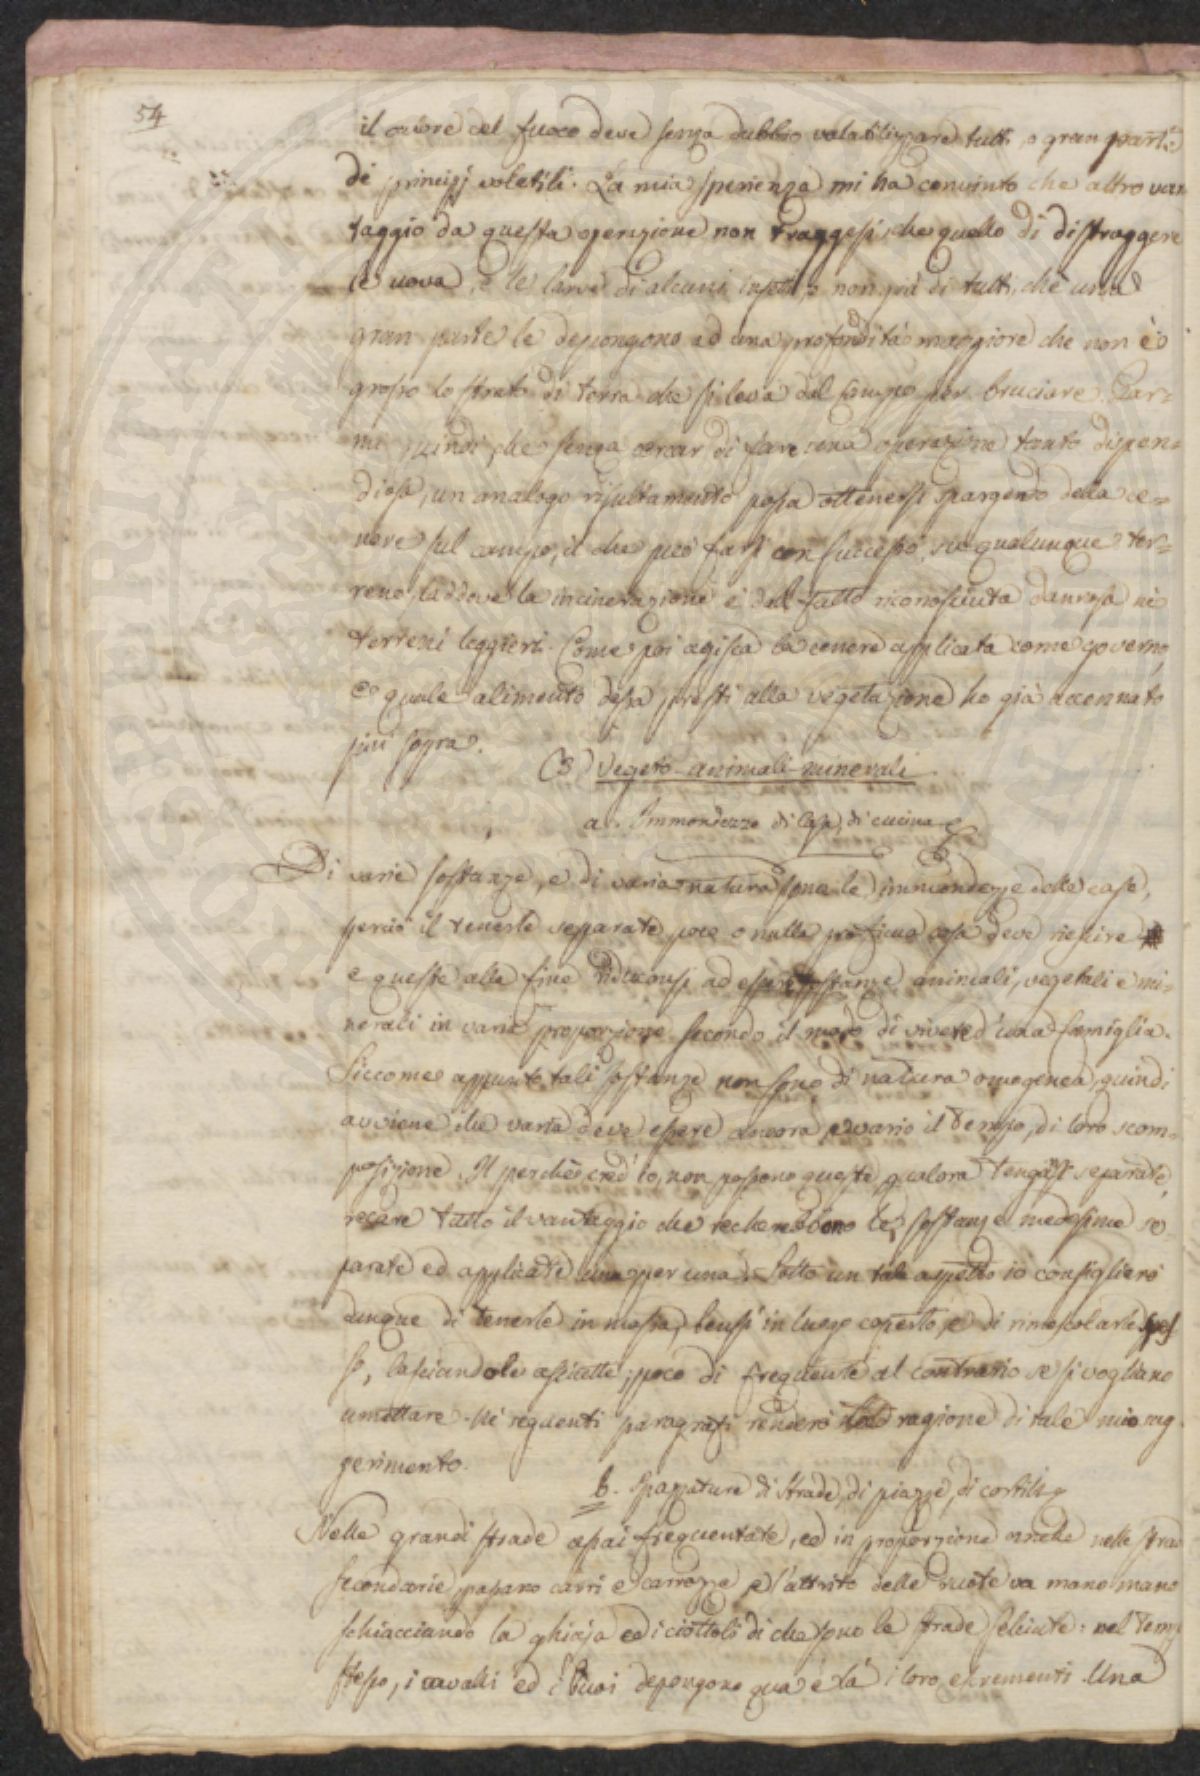 54
il calore del fuoco deve senza dubbio volatilizzare tutti, o gran parte
di principj volatili. La mia sperienza mi ha convinto che altro van
taggio da questa operazione non traggasi che quello di distruggere
le uova, e le larve di alcuni insetti, e non già di tutti, chè una
gran parte le depongono ad una profondità maggiore che non è
grosso lo strato di terra che si leva dal campo per bruciare. Par=
mi quindi, che senza cercar di fare una operazione tanto dispen=
diosa, un analogo risultamento possa ottenersi spargendo della ce=
nere sul campo, il che può farsi con successo, su qualunque ter=
reno laddove la incinerazione è dal fatto riconosciuta dannosa ne
terreni leggieri. Come poi agisca la cenere applicata come governo,
e quale alimento dessa presti alla vegetazione ho già accennato
più sopra.
(3) Vegeto-animali-minerali
a. Immondezze di Casa, di cucina &
Di varie sostanze, e di varia natura sono le immondezze delle case,
perciò il tenerle separate, poco o nulla proficua cosa deve riescire
e queste alla fine riduconsi ad essere sostanze animali, vegetali e mi=
nerali in varia proporzione secondo il modo di vivere d'una famiglia.
Siccome appunto tali sostanze non sono di natura omogenea, quindi
avviene che varia deve essere ancora e vario il tempo, di loro scom=
posizione. Il perchè cred'io, non possono queste qualora tengansi separate,
recare tutto il vantaggio che recherebbono le sostanze medesime se
parate ed applicate una per una. Sotto un tale aspetto io consiglierò
dunque di tenerle in massa, bensì in luogo coperto, e di rimescolarle spes
so, lasciandole asciutte; poco di frequente al contrario se si vogliano
umettare. Ne seguenti paragrafi renderò la ragione di tale mio sug
gerimento.
b. Spazzature di Strade, di piazze, di cortili &
Nelle grandi strade assai frequentate, ed in proporzione anche nelle strad
secondarie passano carri e carrozze e l'attrito delle ruote va mano mano
schiacciando la ghiaja ed i ciottoli di che sono le strade selciate: nel temp
stesso, i cavalli ed i buoi depongono qua e là i loro escrementi. Una